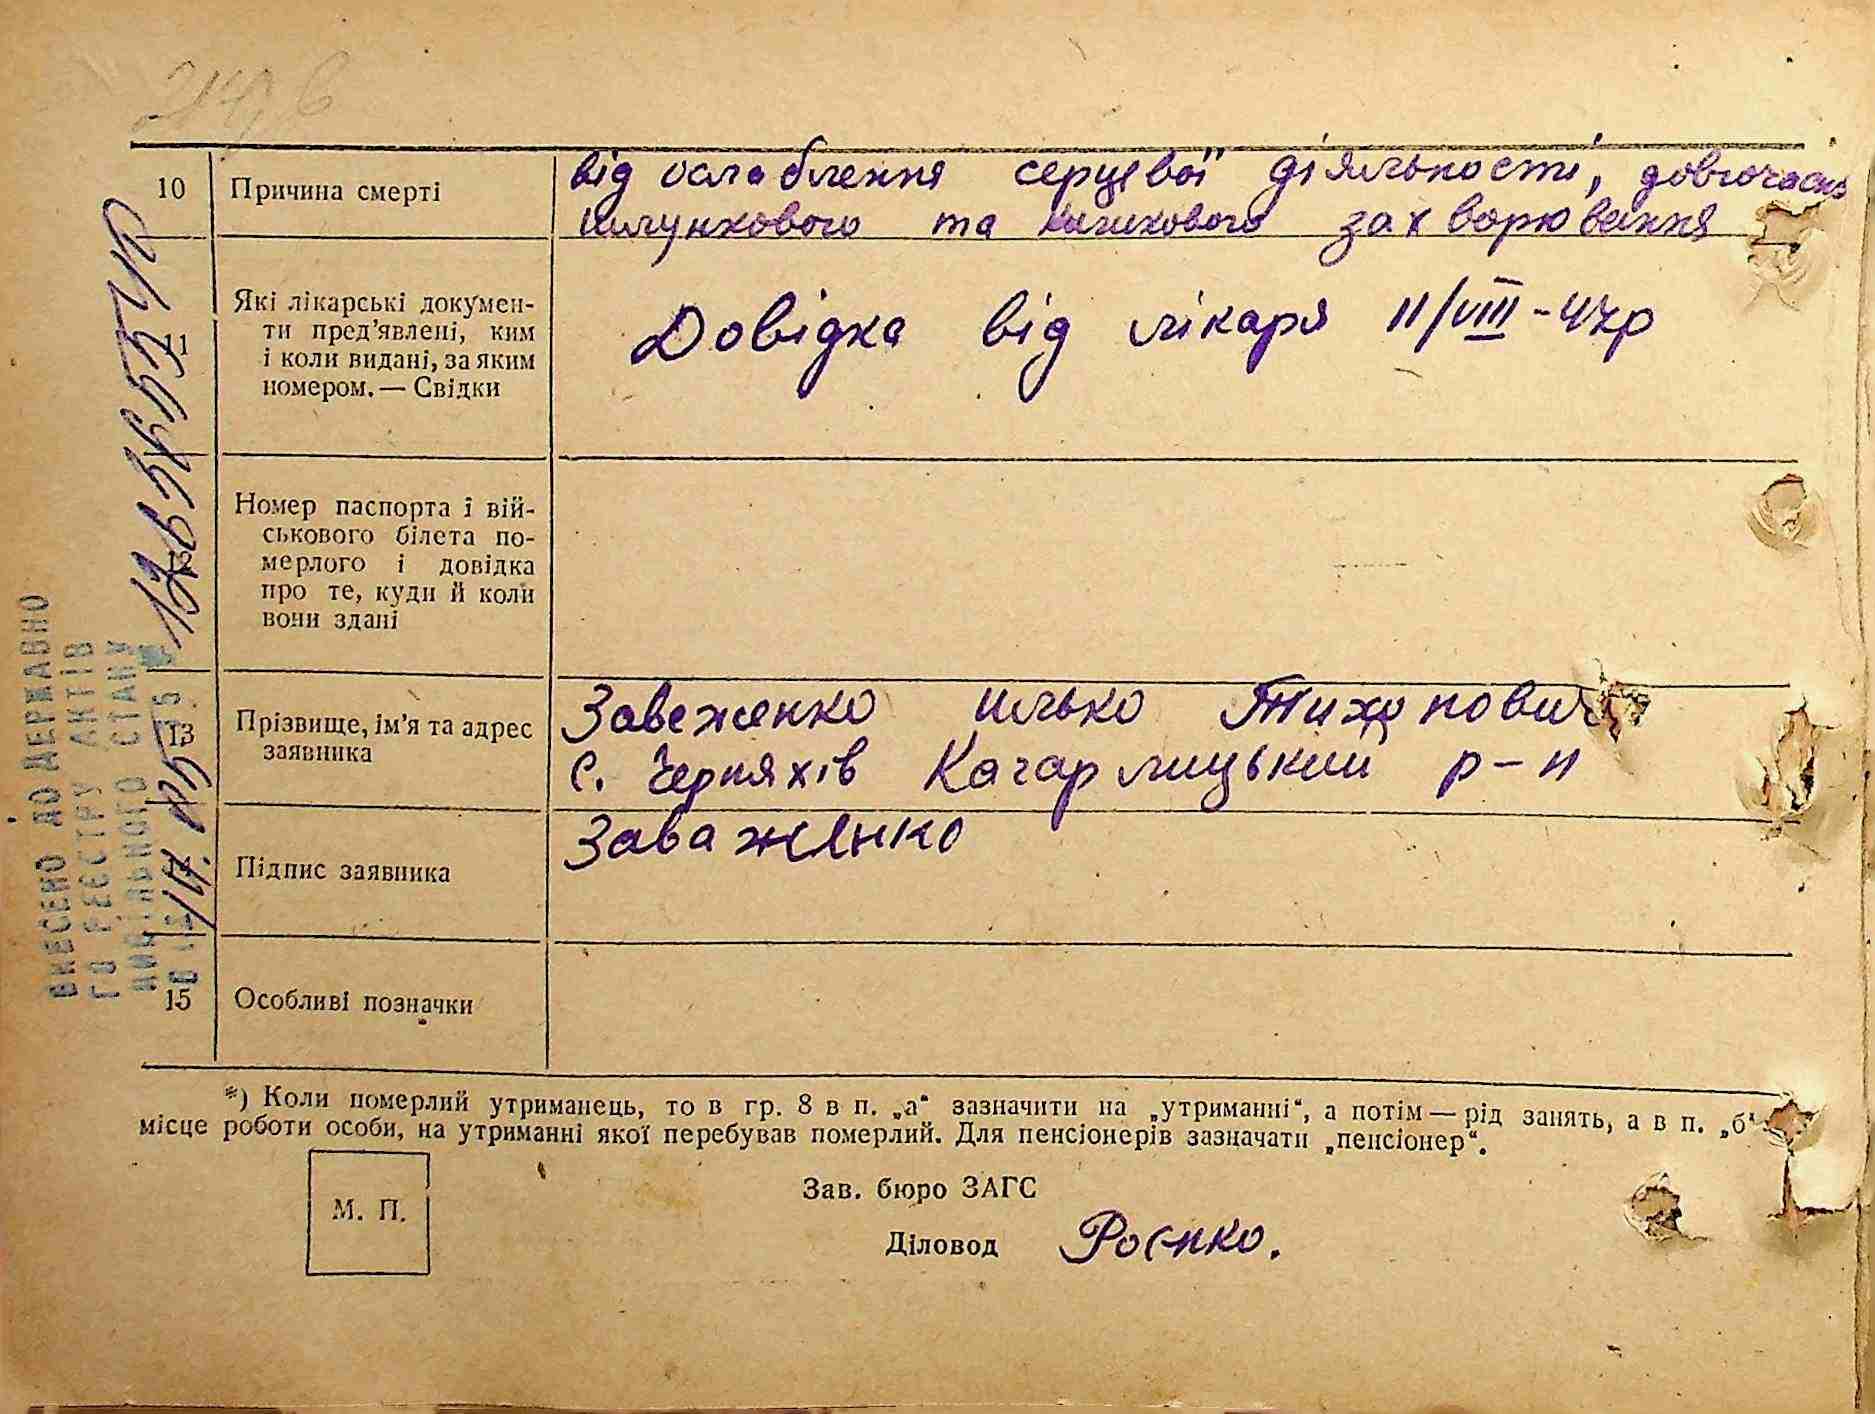 10 Причина смерті
від ослаблення серцевої діяльності,
шлункового та кишкового захворювання
11 Які лікарські докумен-
ти пред’явлені, ким
і коли видані, за яким
номером. — Свідки
Довідка від лікаря 11/VIII-47р
12 Номер паспорта і вій-
ськового білета по-
мерлого і довідка
про те, куди й коли
вони здані
13 Прізвище, ім’я та адрес
заявника
Завеженко илько Тихонович
с. Черняхів Кагарлицький р-н
14 Підпис заявника
Заваженко
15 Особливі позначки
*) Коли померлий утриманець, то в гр. 8 в п. „а“ зазначити на „утриманні“, а потім — рід занять, а в п. „б“
місце роботи особи, на утриманні якої перебував померлий. Для пенсіонерів зазначати „пенсіонер“.
М. П.
Зав. бюро ЗАГС
Діловод Роєнко.
ВНЕСЕНО ДО ДЕРЖАВНО
ГО РЕЄСТРУ АКТІВ
ЦИВІЛЬНОГО СТАНУ